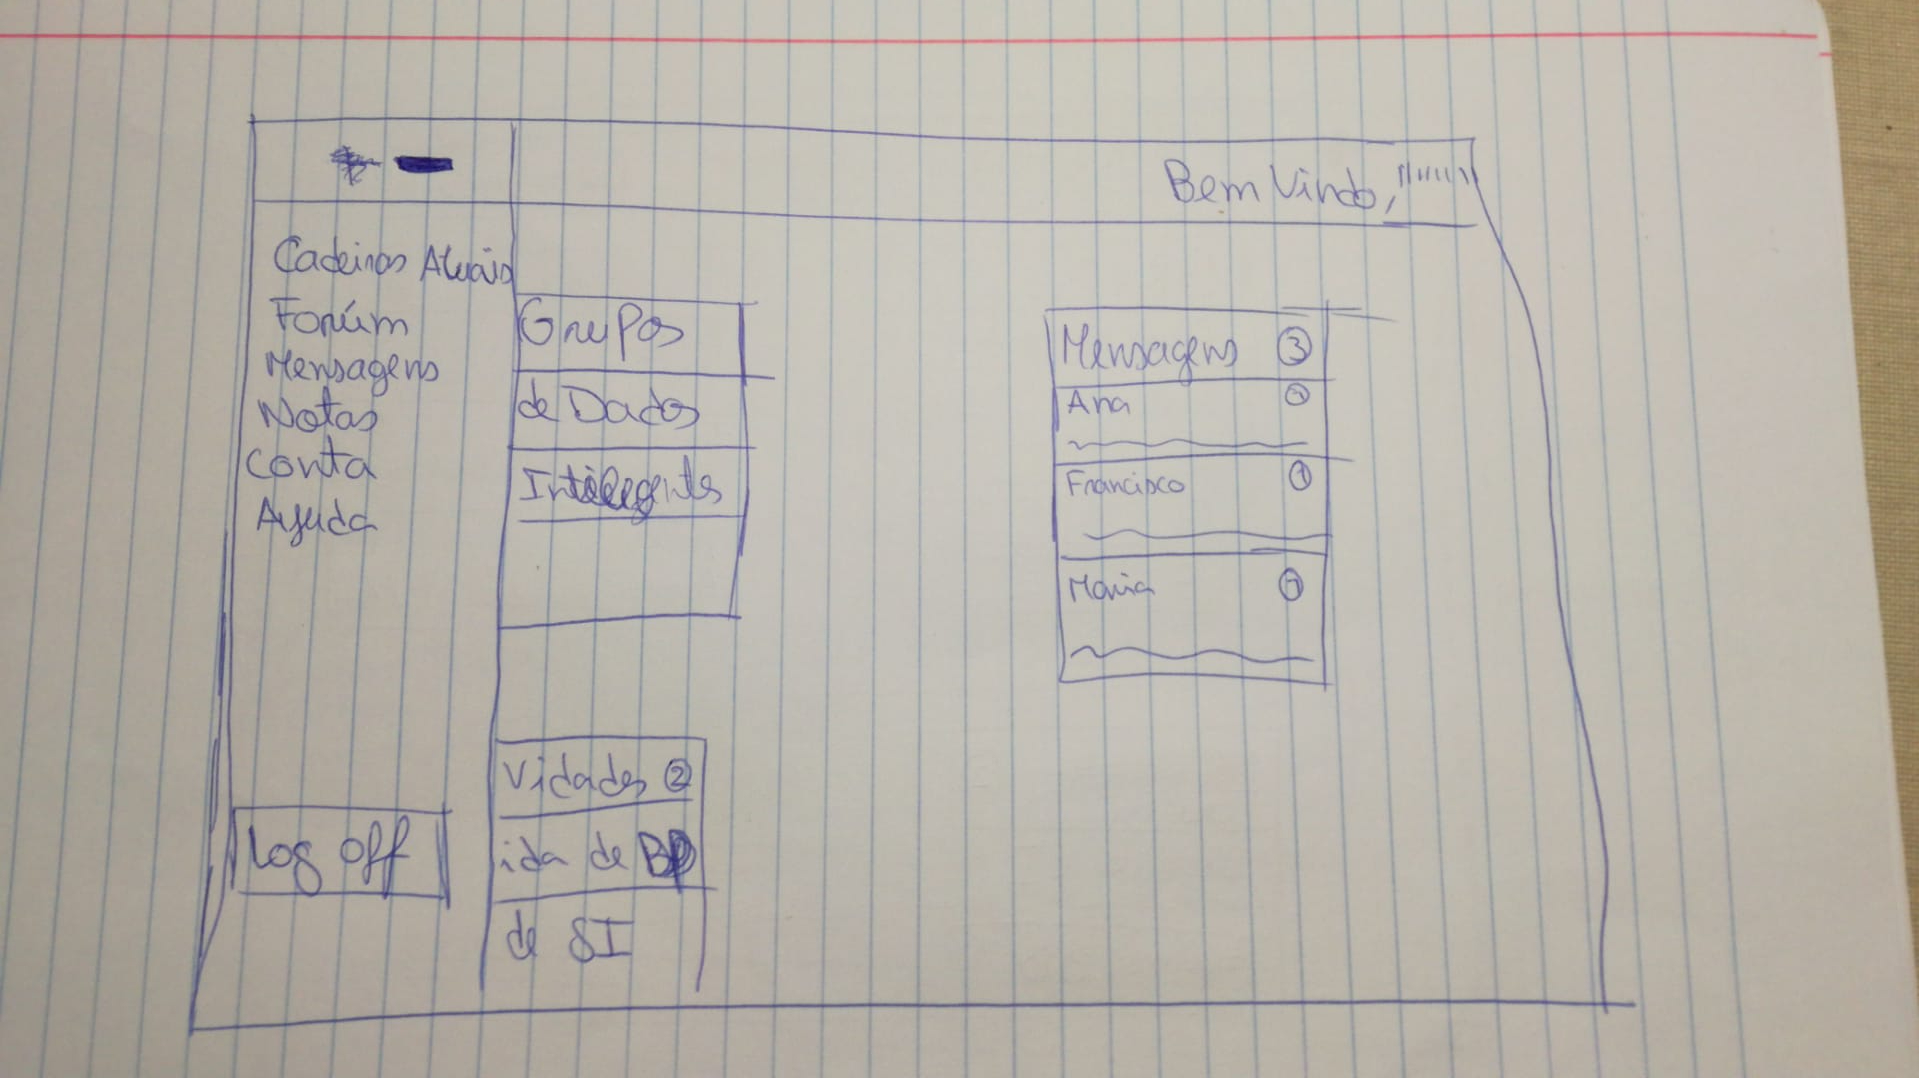 Bem Vindo,
Cadeiras Atuais
Forúm
Mensagens
Notas
Conta
Ajuda
Log off
Grupos
de Dados
Inteligentes
Vidades 2
ida de BD
de SI
Mensagens 3
Ana 1
Francisco 1
Maria 1